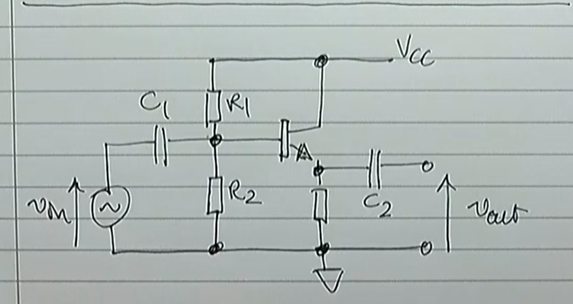 Vcc
C1
R1
R2
C2
vin
vout